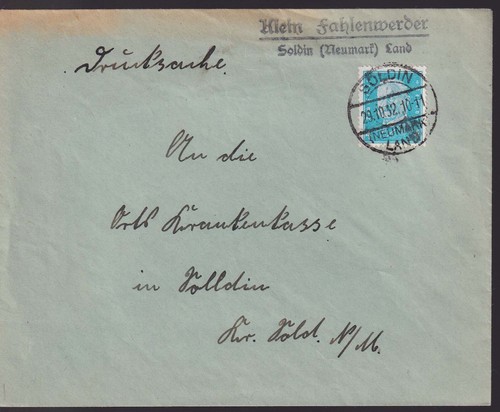 Klein Fahlenwerder
Soldin (Neumark) Land
Drucksache.
SOLDIN
29.10.32.10-11
(NEUMARK)
LAND
An die
Orts Krankenkasse
in Solldin
Kr. Sold. N/M.